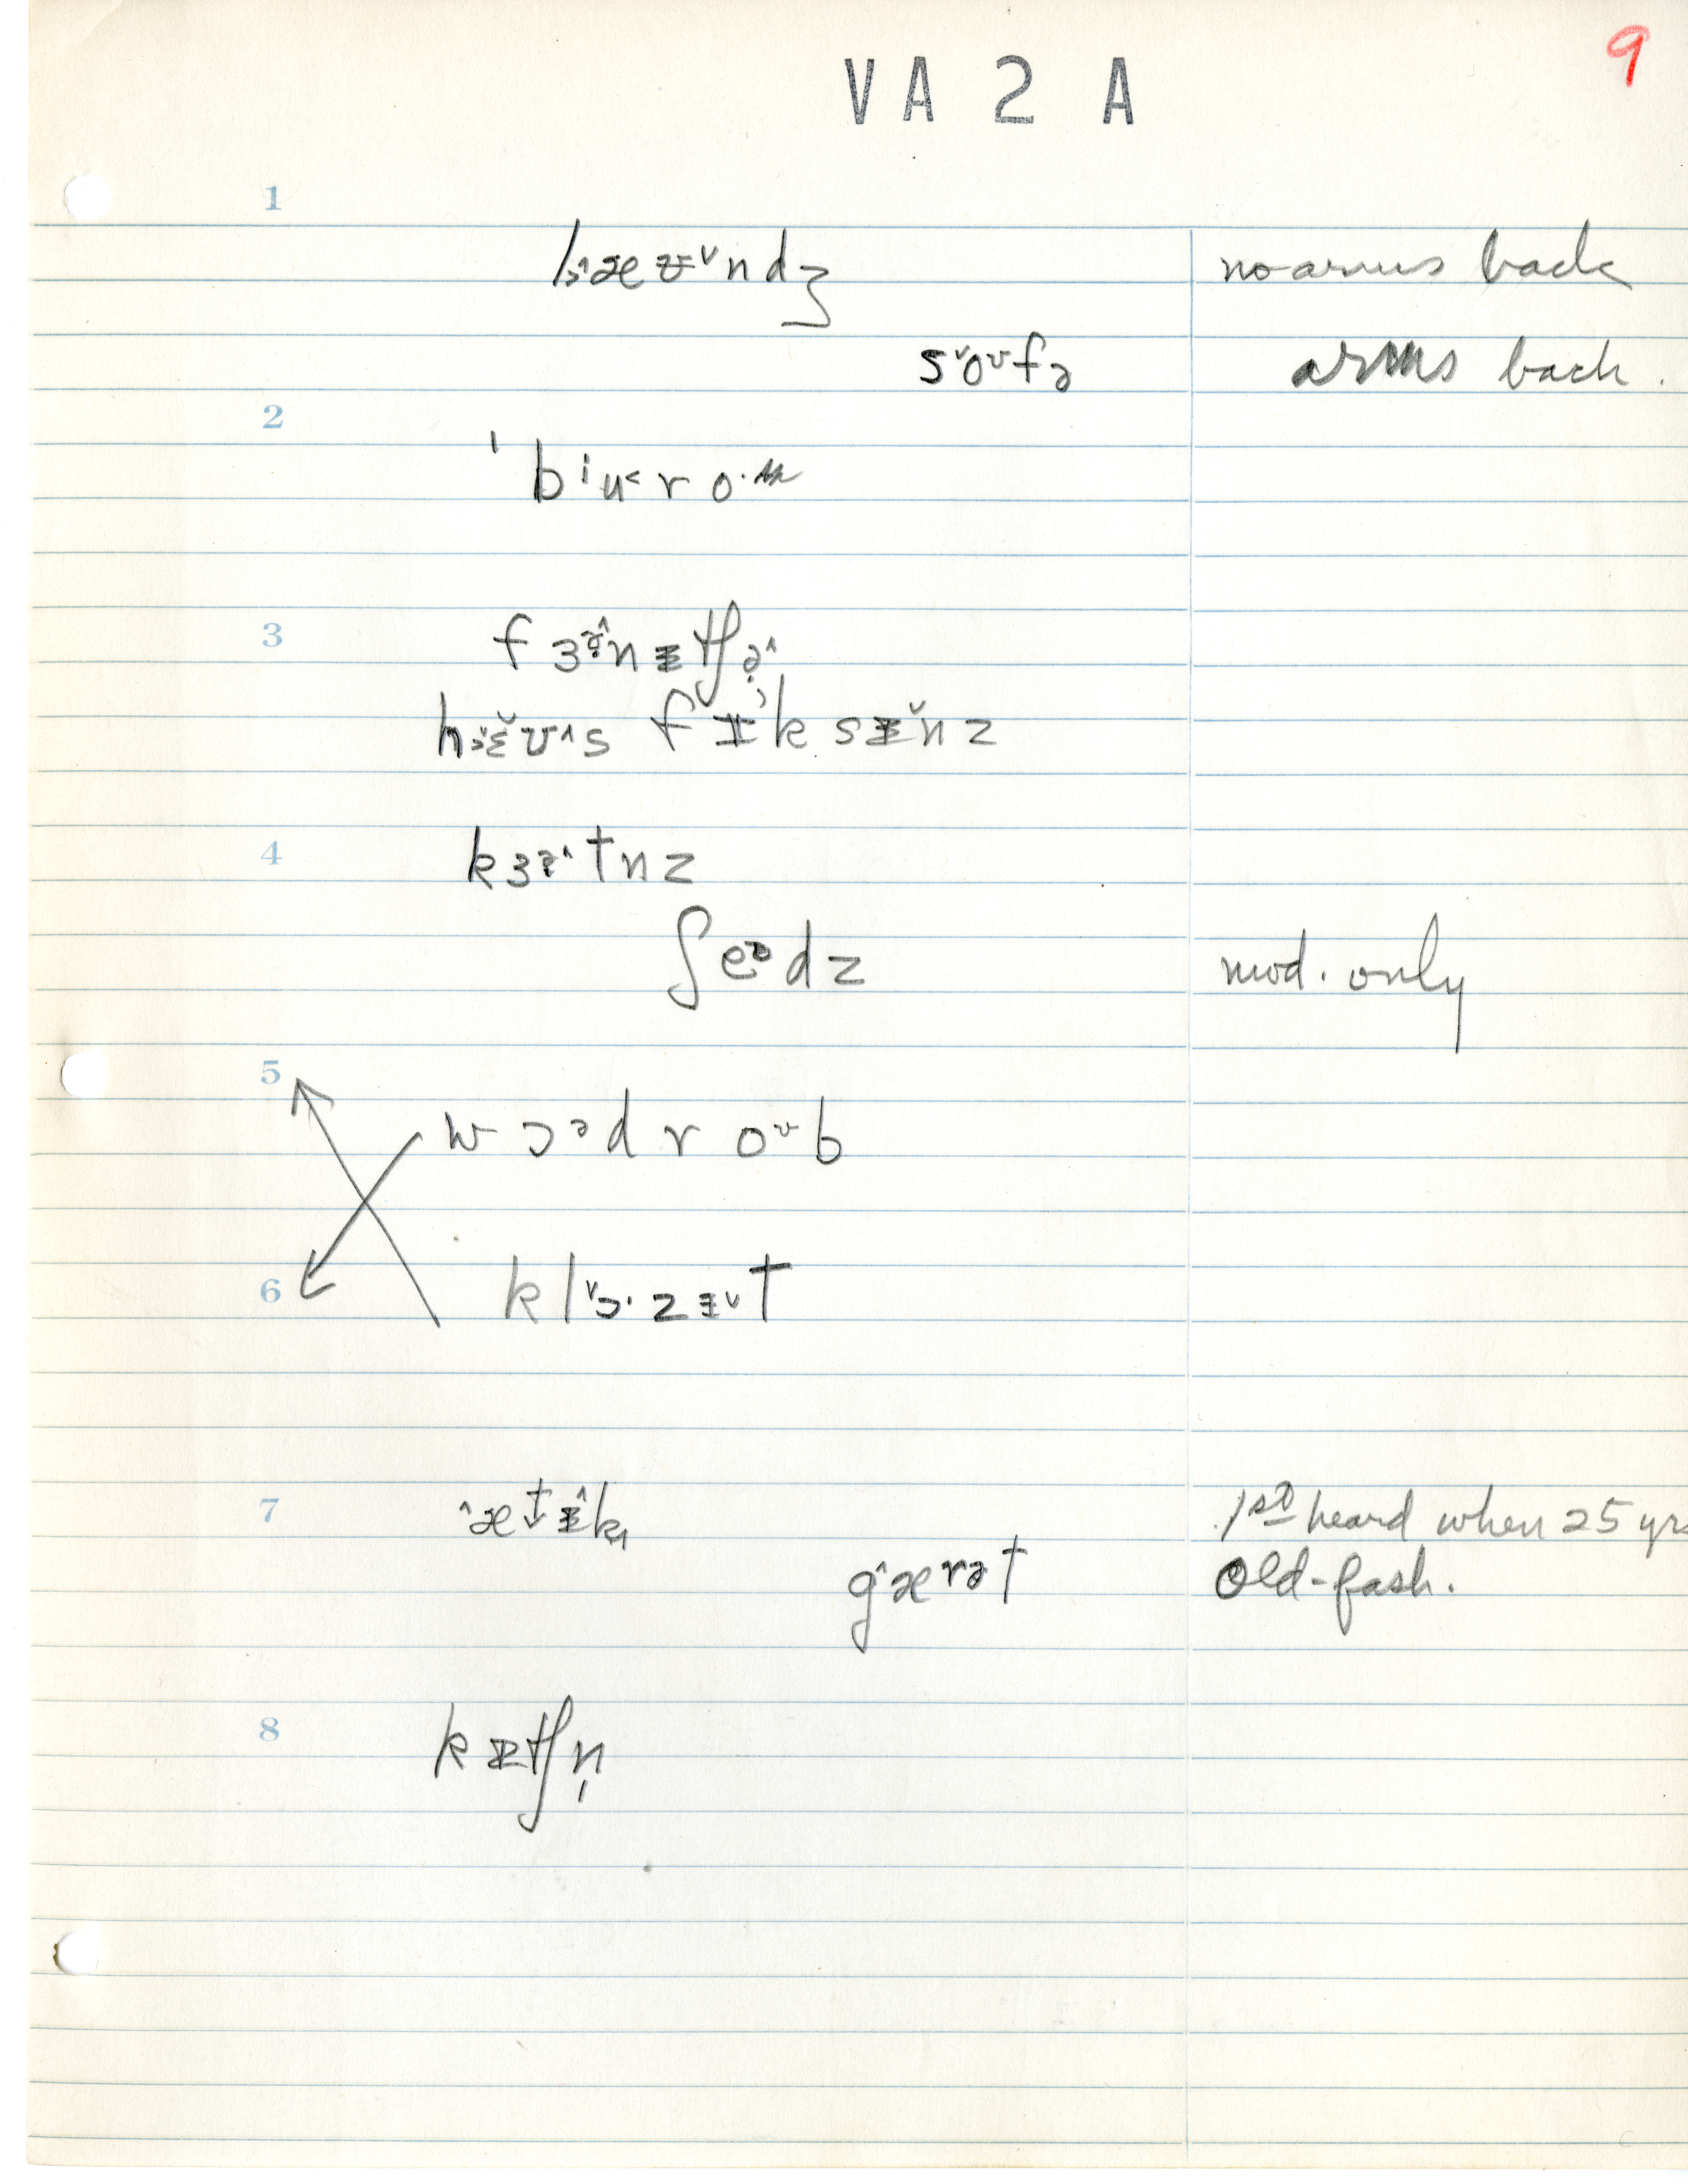 9
VA 2 A
1
l̞ˆæʉ˅ndʒ no arms back
s˅oᶷfə arms back.
2
ˈbⁱu˂ro·
3
fɜɚˆnɨtʃɚˆ
hɛ˅ʊˆs fɪ'ksɨ˅nz
4
kɜɚˆtnz
ʃeᵊdz mod. only
5
wɔᵊdroᶷb
6
kl˅ɔ·zɨ˅t
7
ˆætɨˆk 1st heard when 25 yrs
gˆærət old-fash.
8
kɪtʃn̩